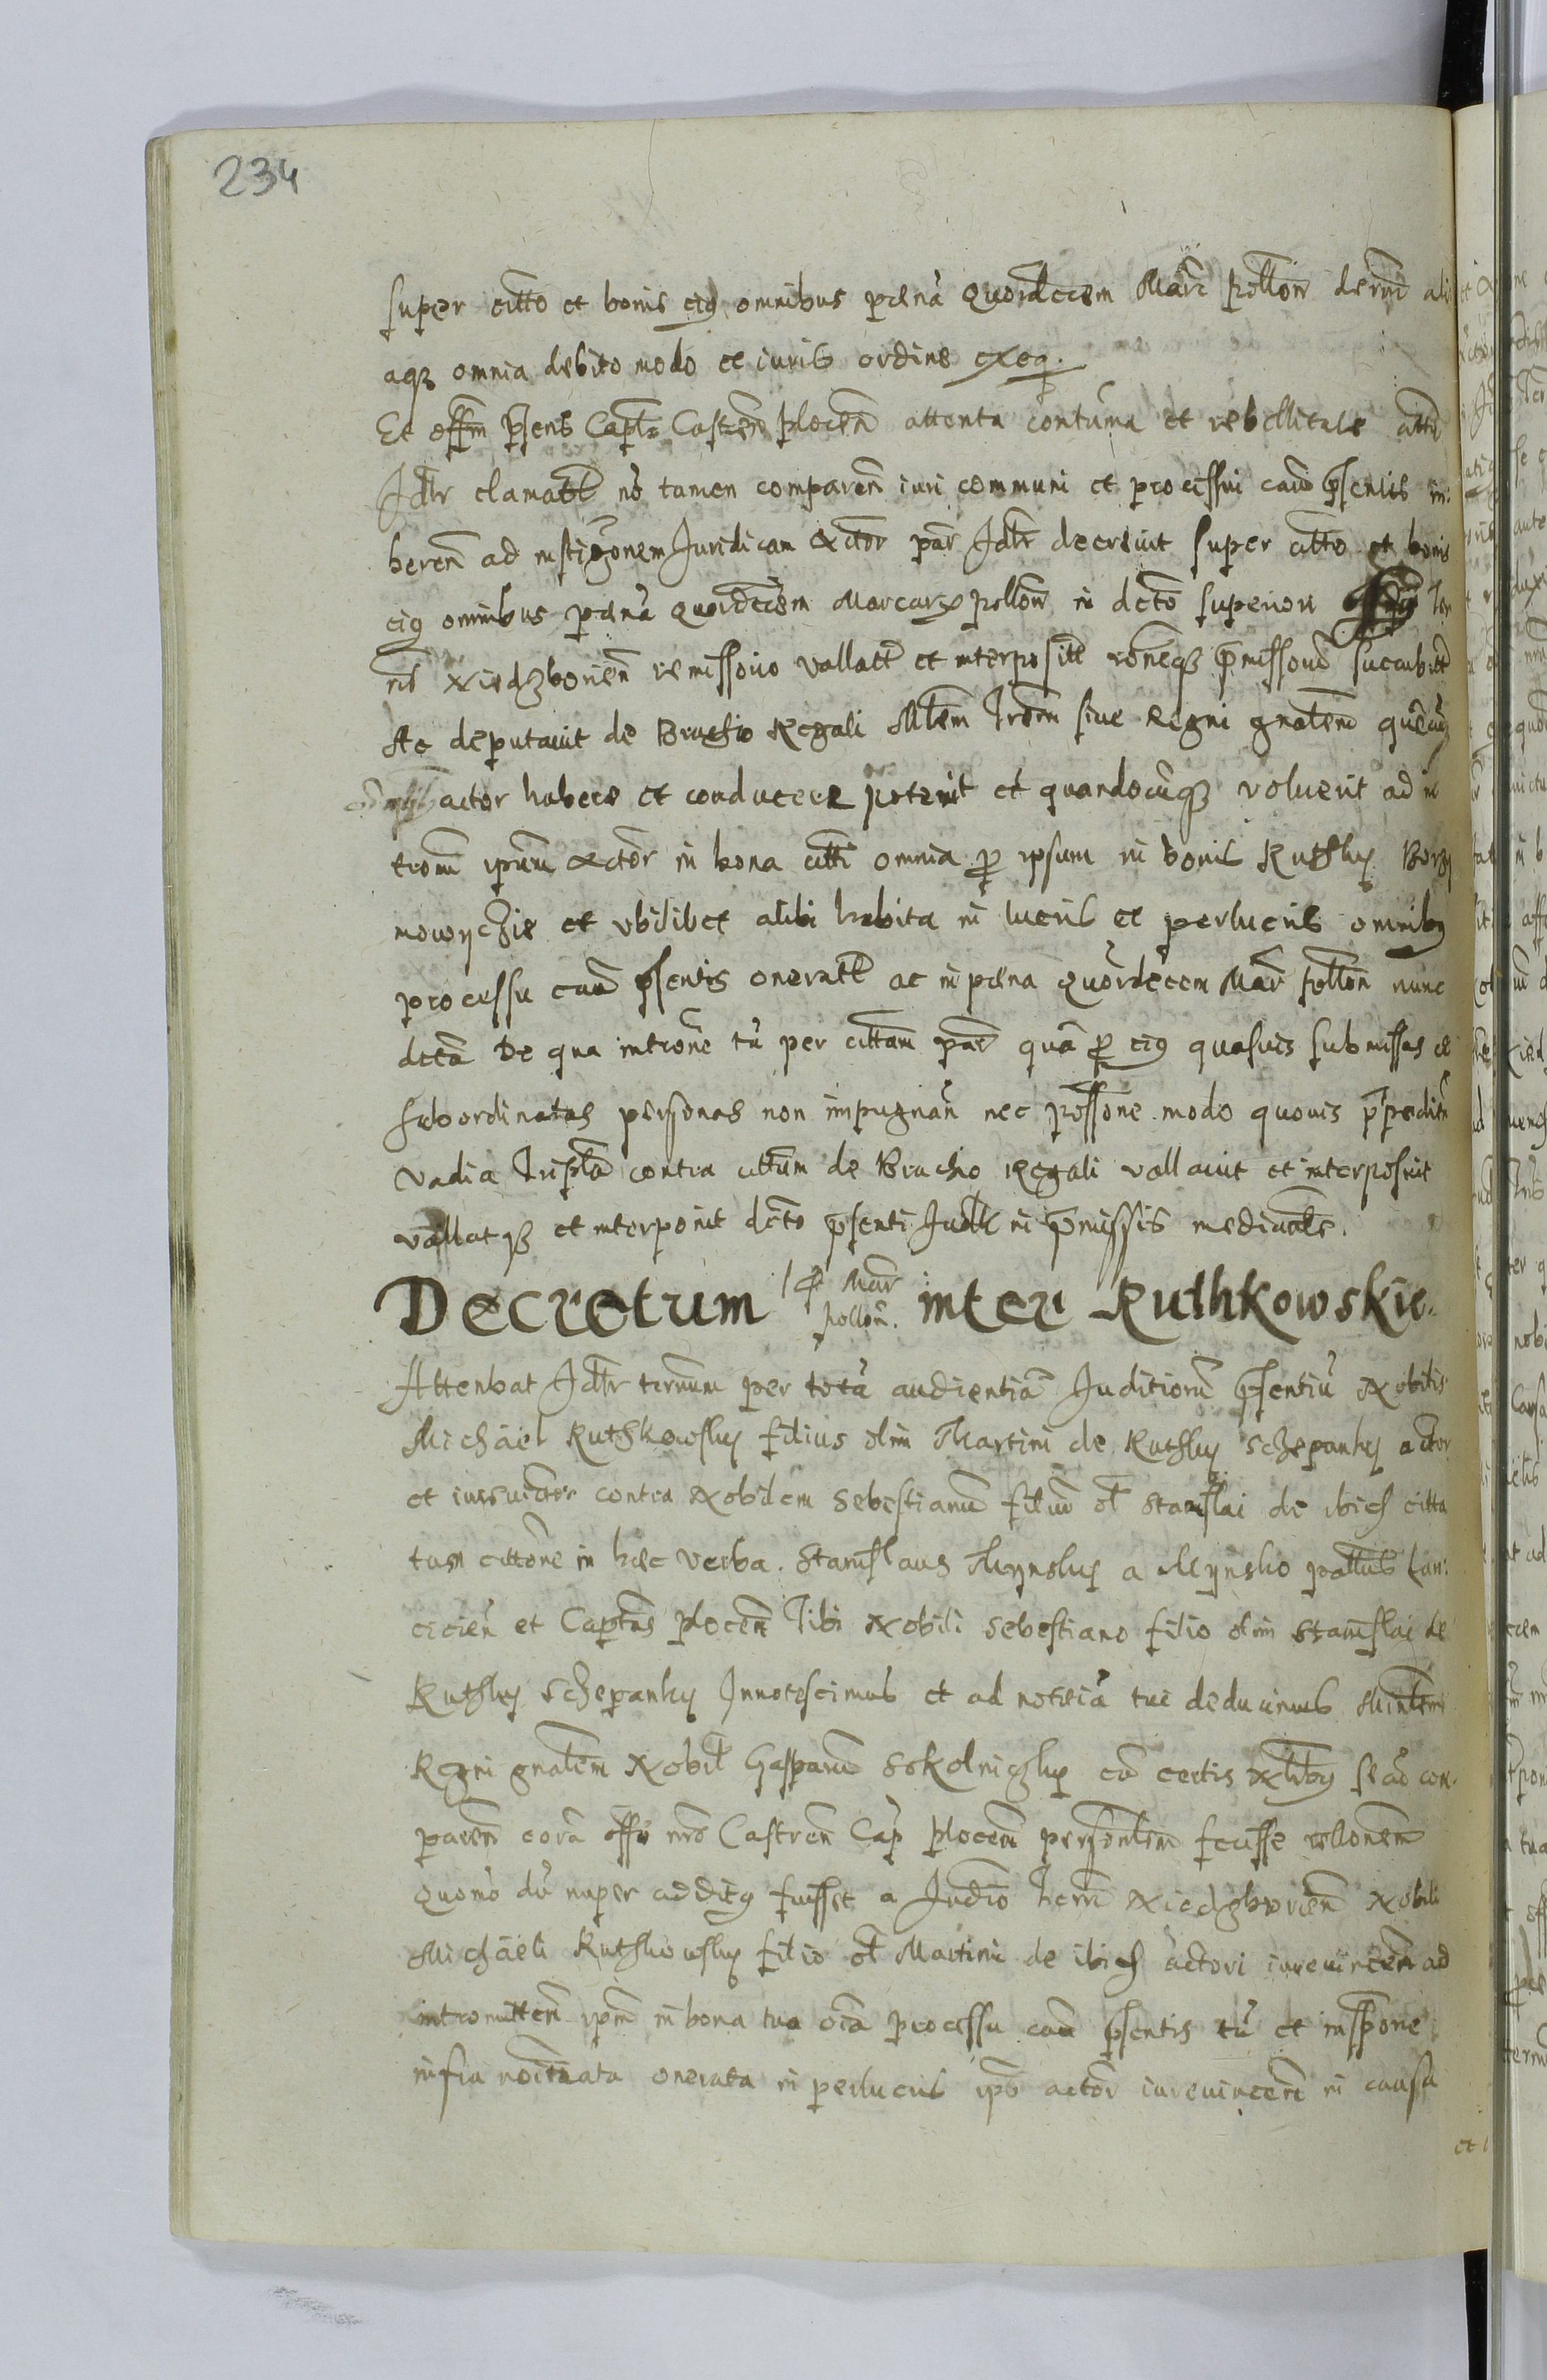 234
super citto et bonis eig omnibus pæna quordecem Marc pollon decerni ali
aqz omnia debito modo et iuris ordine exeq.
Et offm psens Captle Castren plocen attenta contuma et rebellitate citti
Jdtr clamatt no tamen comparen iuri communi et processui caus psentis in:
heren ad instigonem Juridicam actor par Jdtr decreuit super citto et bonis
eig omnibus pæna quordecem Marcarz pollon in dcto superiori Ter
ris xiedzborien remissorio vallatt et interpositt roneqz pmissoru succubitt
Ac deputauit de Brachio Regali Mtem Trem siue Regni gnalem quecuqz
actor habere et conducere poterit et quandocuqz voluerit ad in
trom ipsum actor in bona citti omnia p ipsum in bonis Ruthky Borzy
mowychie et vbilibet alibi habita in lucris et perlucris omnibg
processu caus psentis oneratt ac in pæna quordecem Mar pollon nunc
dcta De qua introne tu per cittam par qua p eig quasuis submissas et
subordinatas personas non impugnan nec possone modo quouis ppedien
vadia Tripla contra cittum de Brachio Regali vallauit et interposuit
vallatqz et interponit dcto psenti Judtr in pmissis mediante.
Decretum 14 Mar pollon. inter Ruthkowskie.
Attentat Jdtr termum per tota audientia Juditioru psentiu Nobilis
Michael Ruthkowsky filius olim Martini de Ruthky Schepanky actor
et iureuictor contra Nobilem Sebestianu filiu ol Stanislai de ibich citta
tum cittone in hæc verba. Stanislaus Mynsky a Mynsko pallus Lan:
cicien et Captus plocen Tibi Nobili Sebestiano filio olim Stanislai de
Ruthky Schepanky Innotescimus et ad notitia tui deducimus Minlem
Regni gnalem Nobil Gasparu Sokolnicky cu certis Nlibg se ad com
paren cora offo nro Castren Cap plocen personlem fecisse rellonem
Quomo du nuper additg fuisset a Judio Terri xiedzborien Nobili
Michaeli Ruthkowsky filio ol Martini de ibich actori iureuincen ad
intromitten ipm in bona tua oia processu caus psentis tu et in spone
infra noinata onerata in perlucris ipo actor iureuincen in causa